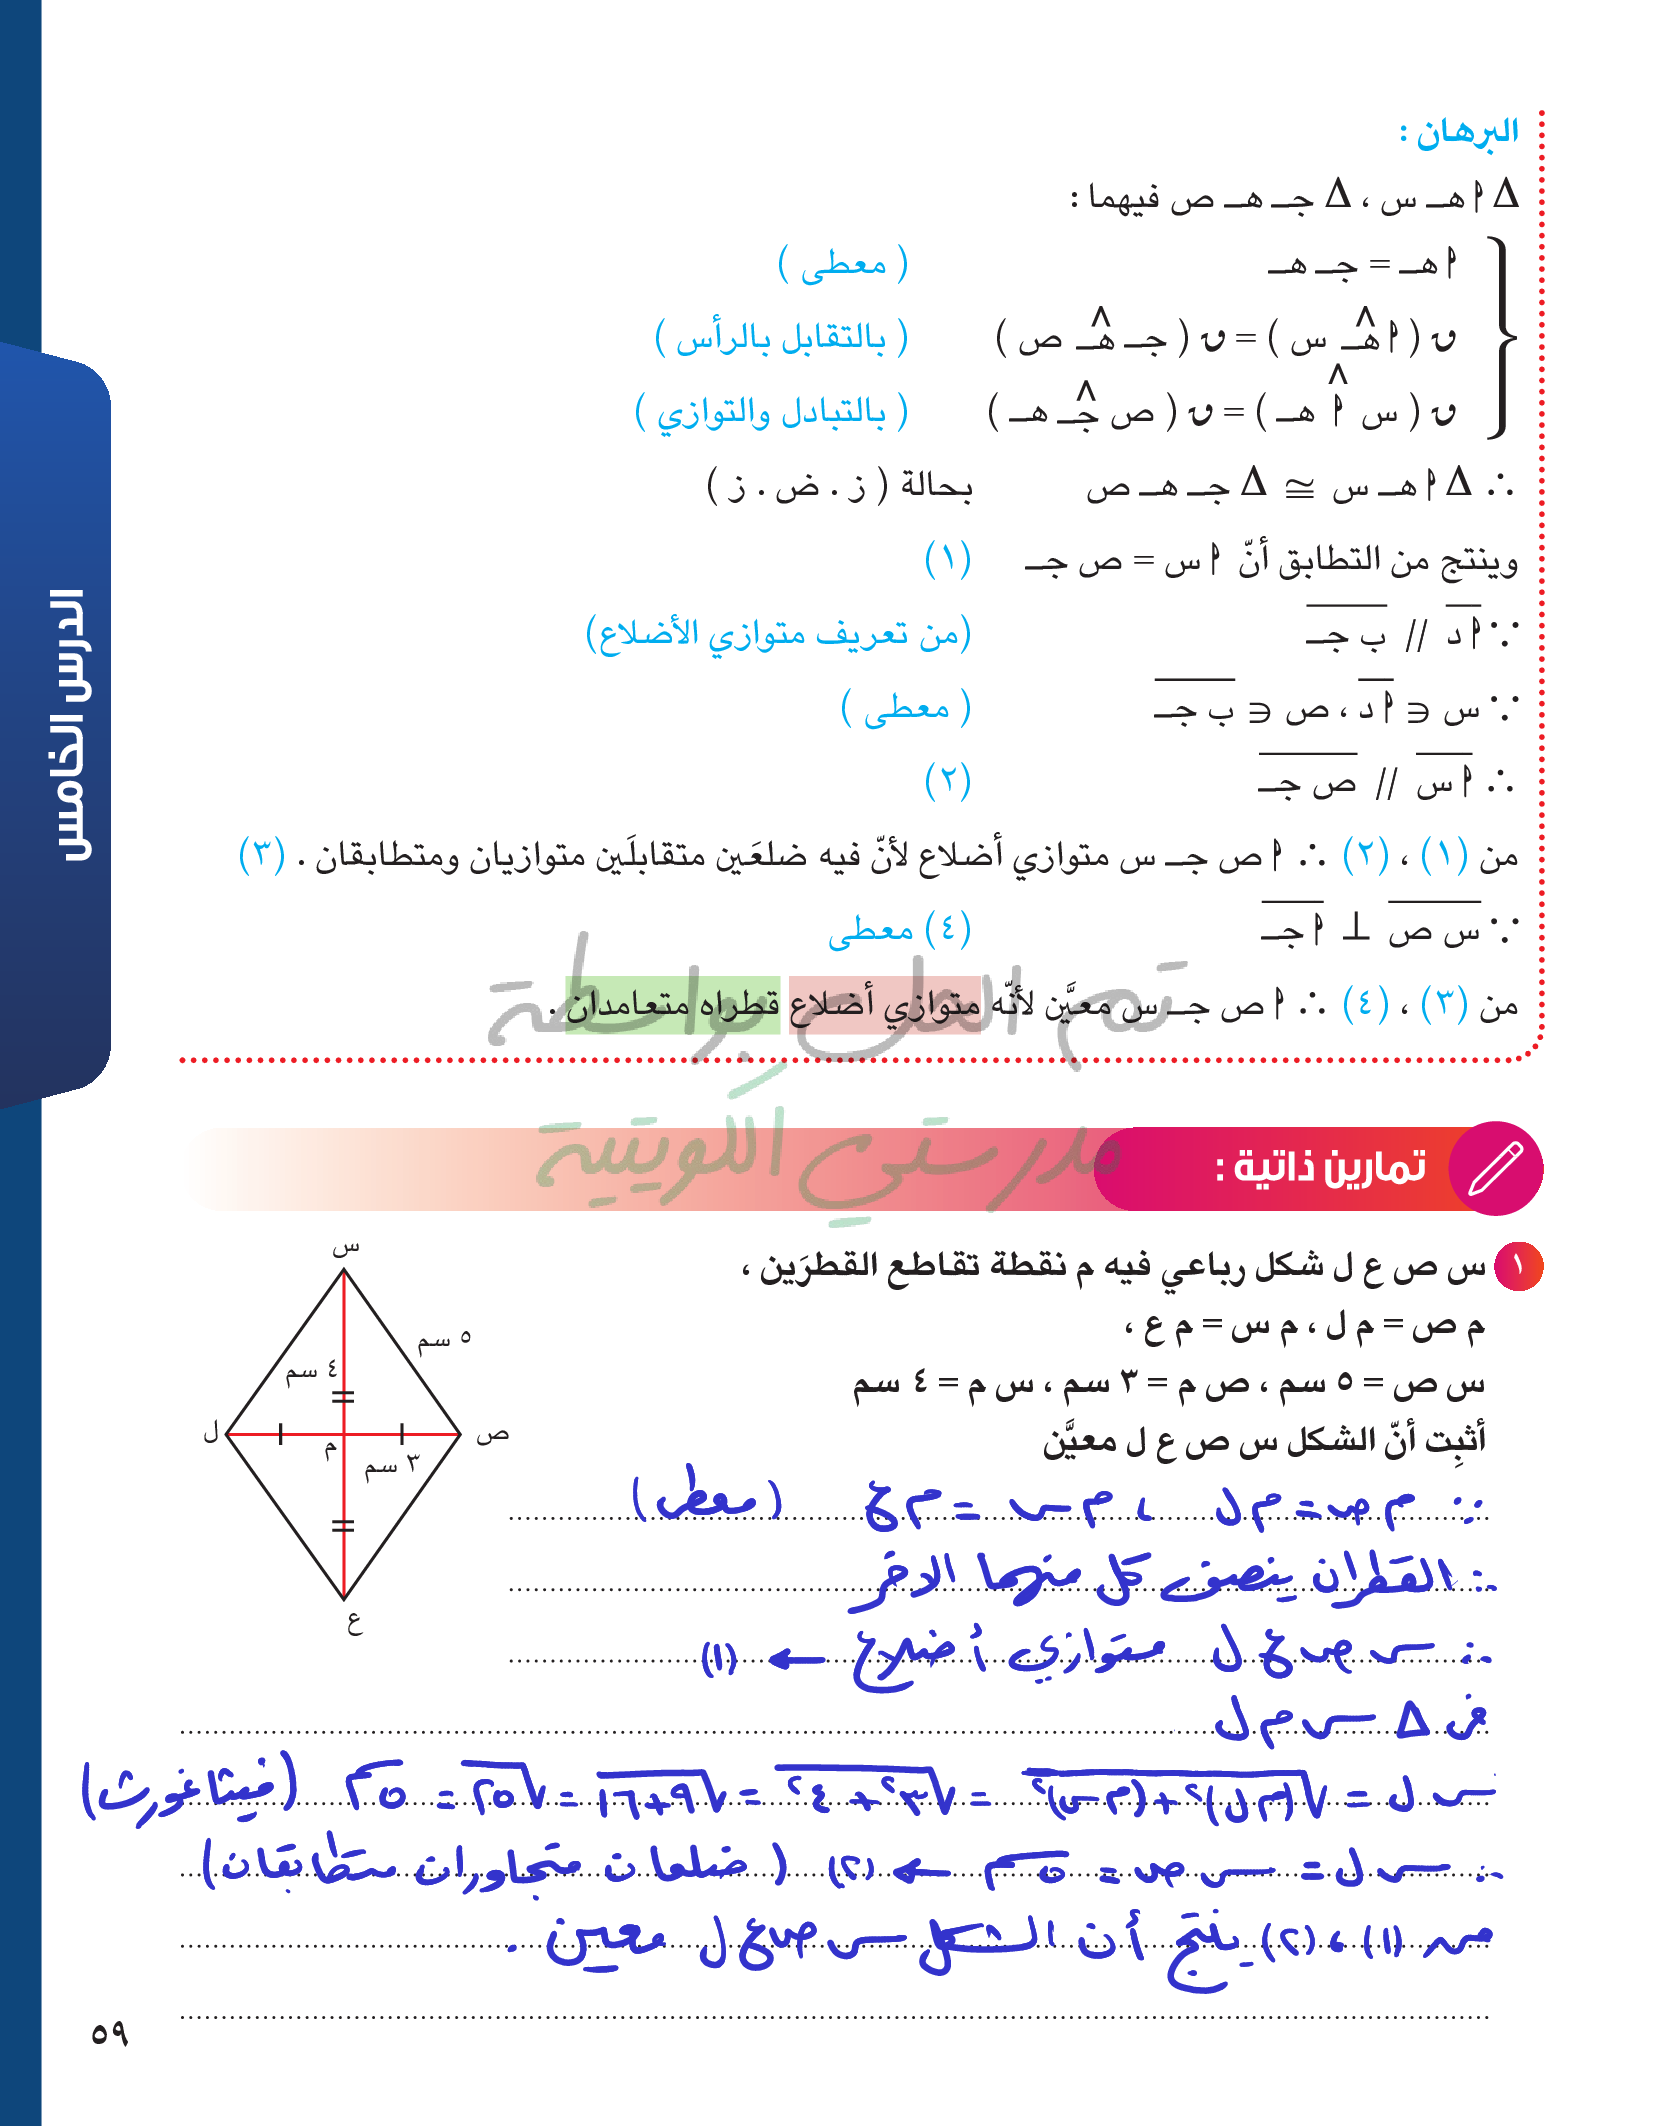 البرهان :
Δ أ هـ س ، Δ جـ هـ ص فيهما :
أ هـ = جـ هـ ( معطى )
ق ( أ هـ^ س ) = ق ( جـ هـ^ ص ) ( بالتقابل بالرأس )
ق ( س أ^ هـ ) = ق ( ص جـ^ هـ ) ( بالتبادل والتوازي )
∴ Δ أ هـ س ≅ Δ جـ هـ ص بحالة ( ز . ض . ز )
وينتج من التطابق أنّ أ س = ص جـ (١)
∵ أ د // ب جـ (من تعريف متوازي الأضلاع)
∵ س ∈ أ د ، ص ∈ ب جـ ( معطى )
∴ أ س // ص جـ (٢)
من (١) ، (٢) ∴ أ ص جـ س متوازي أضلاع لأنّ فيه ضلعَين متقابلَين متوازيان ومتطابقان . (٣)
∵ س ص ⊥ أ جـ (٤) معطى
من (٣) ، (٤) ∴ أ ص جـ س معيَّن لأنّه متوازي أضلاع قطراه متعامدان .
تم الحل بواسطة
مدرستي الكويتية
الدرس الخامس
تمارين ذاتية :
١ س ص ع ل شكل رباعي فيه م نقطة تقاطع القطرَين ،
م ص = م ل ، م س = م ع ،
س ص = ٥ سم ، ص م = ٣ سم ، س م = ٤ سم
أثبِت أنّ الشكل س ص ع ل معيَّن
س
٥ سم
٤ سم
ل
م
ص
٣ سم
ع
∵ م ص = م ل ، م س = م ع (معطى)
∴ القطران ينصف كل منهما الاخر
∴ س ص ع ل متوازي أضلاع ← (١)
في Δ س م ل
س ل = √(م ل)٢+(م س)٢ = √٣٢+٤٢ = √٩+١٦ = √٢٥ = ٥ سم (فيثاغورث)
∴ س ل = س ص = ٥ سم ← (٢) (ضلعان متجاوران متطابقان)
من (١) ، (٢) ينتج أن الشكل س ص ع ل معين .
٥٩